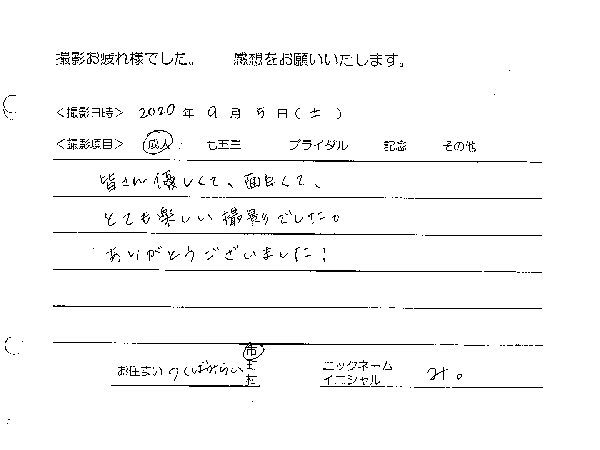 撮影お疲れ様でした。 感想をお願いいたします。
<撮影日時> 2020 年 9 月 5 日 (土)
<撮影項目> 成人 七五三 ブライダル 記念 その他
皆さん優しくて、面白くて、
とても楽しい撮影でした。
ありがとうございました!
お住まい つくばみらい 市 町 村 ニックネーム イニシャル みo